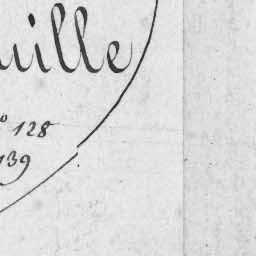 uille
º 128
139